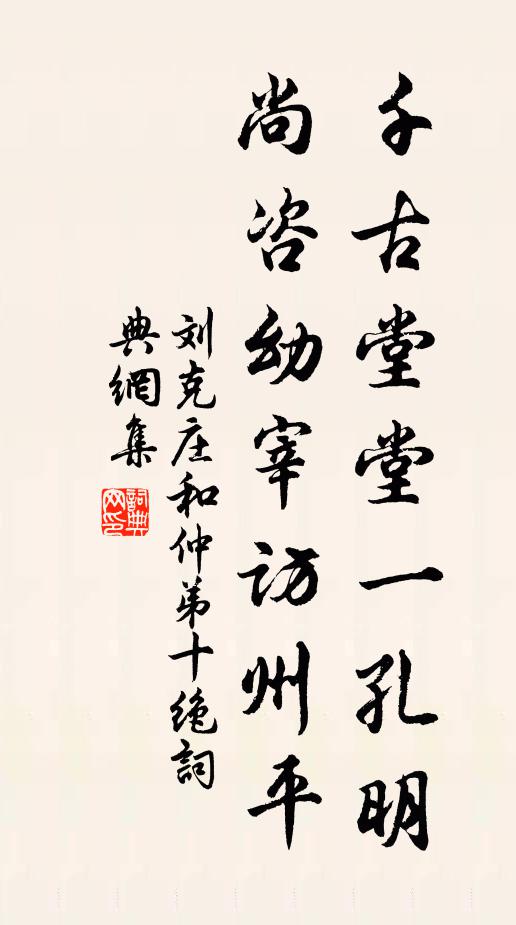 千古堂堂一孔明
尚咨幼宰访州平
刘克庄和仲弟十绝詞
典網集
詞典
网印